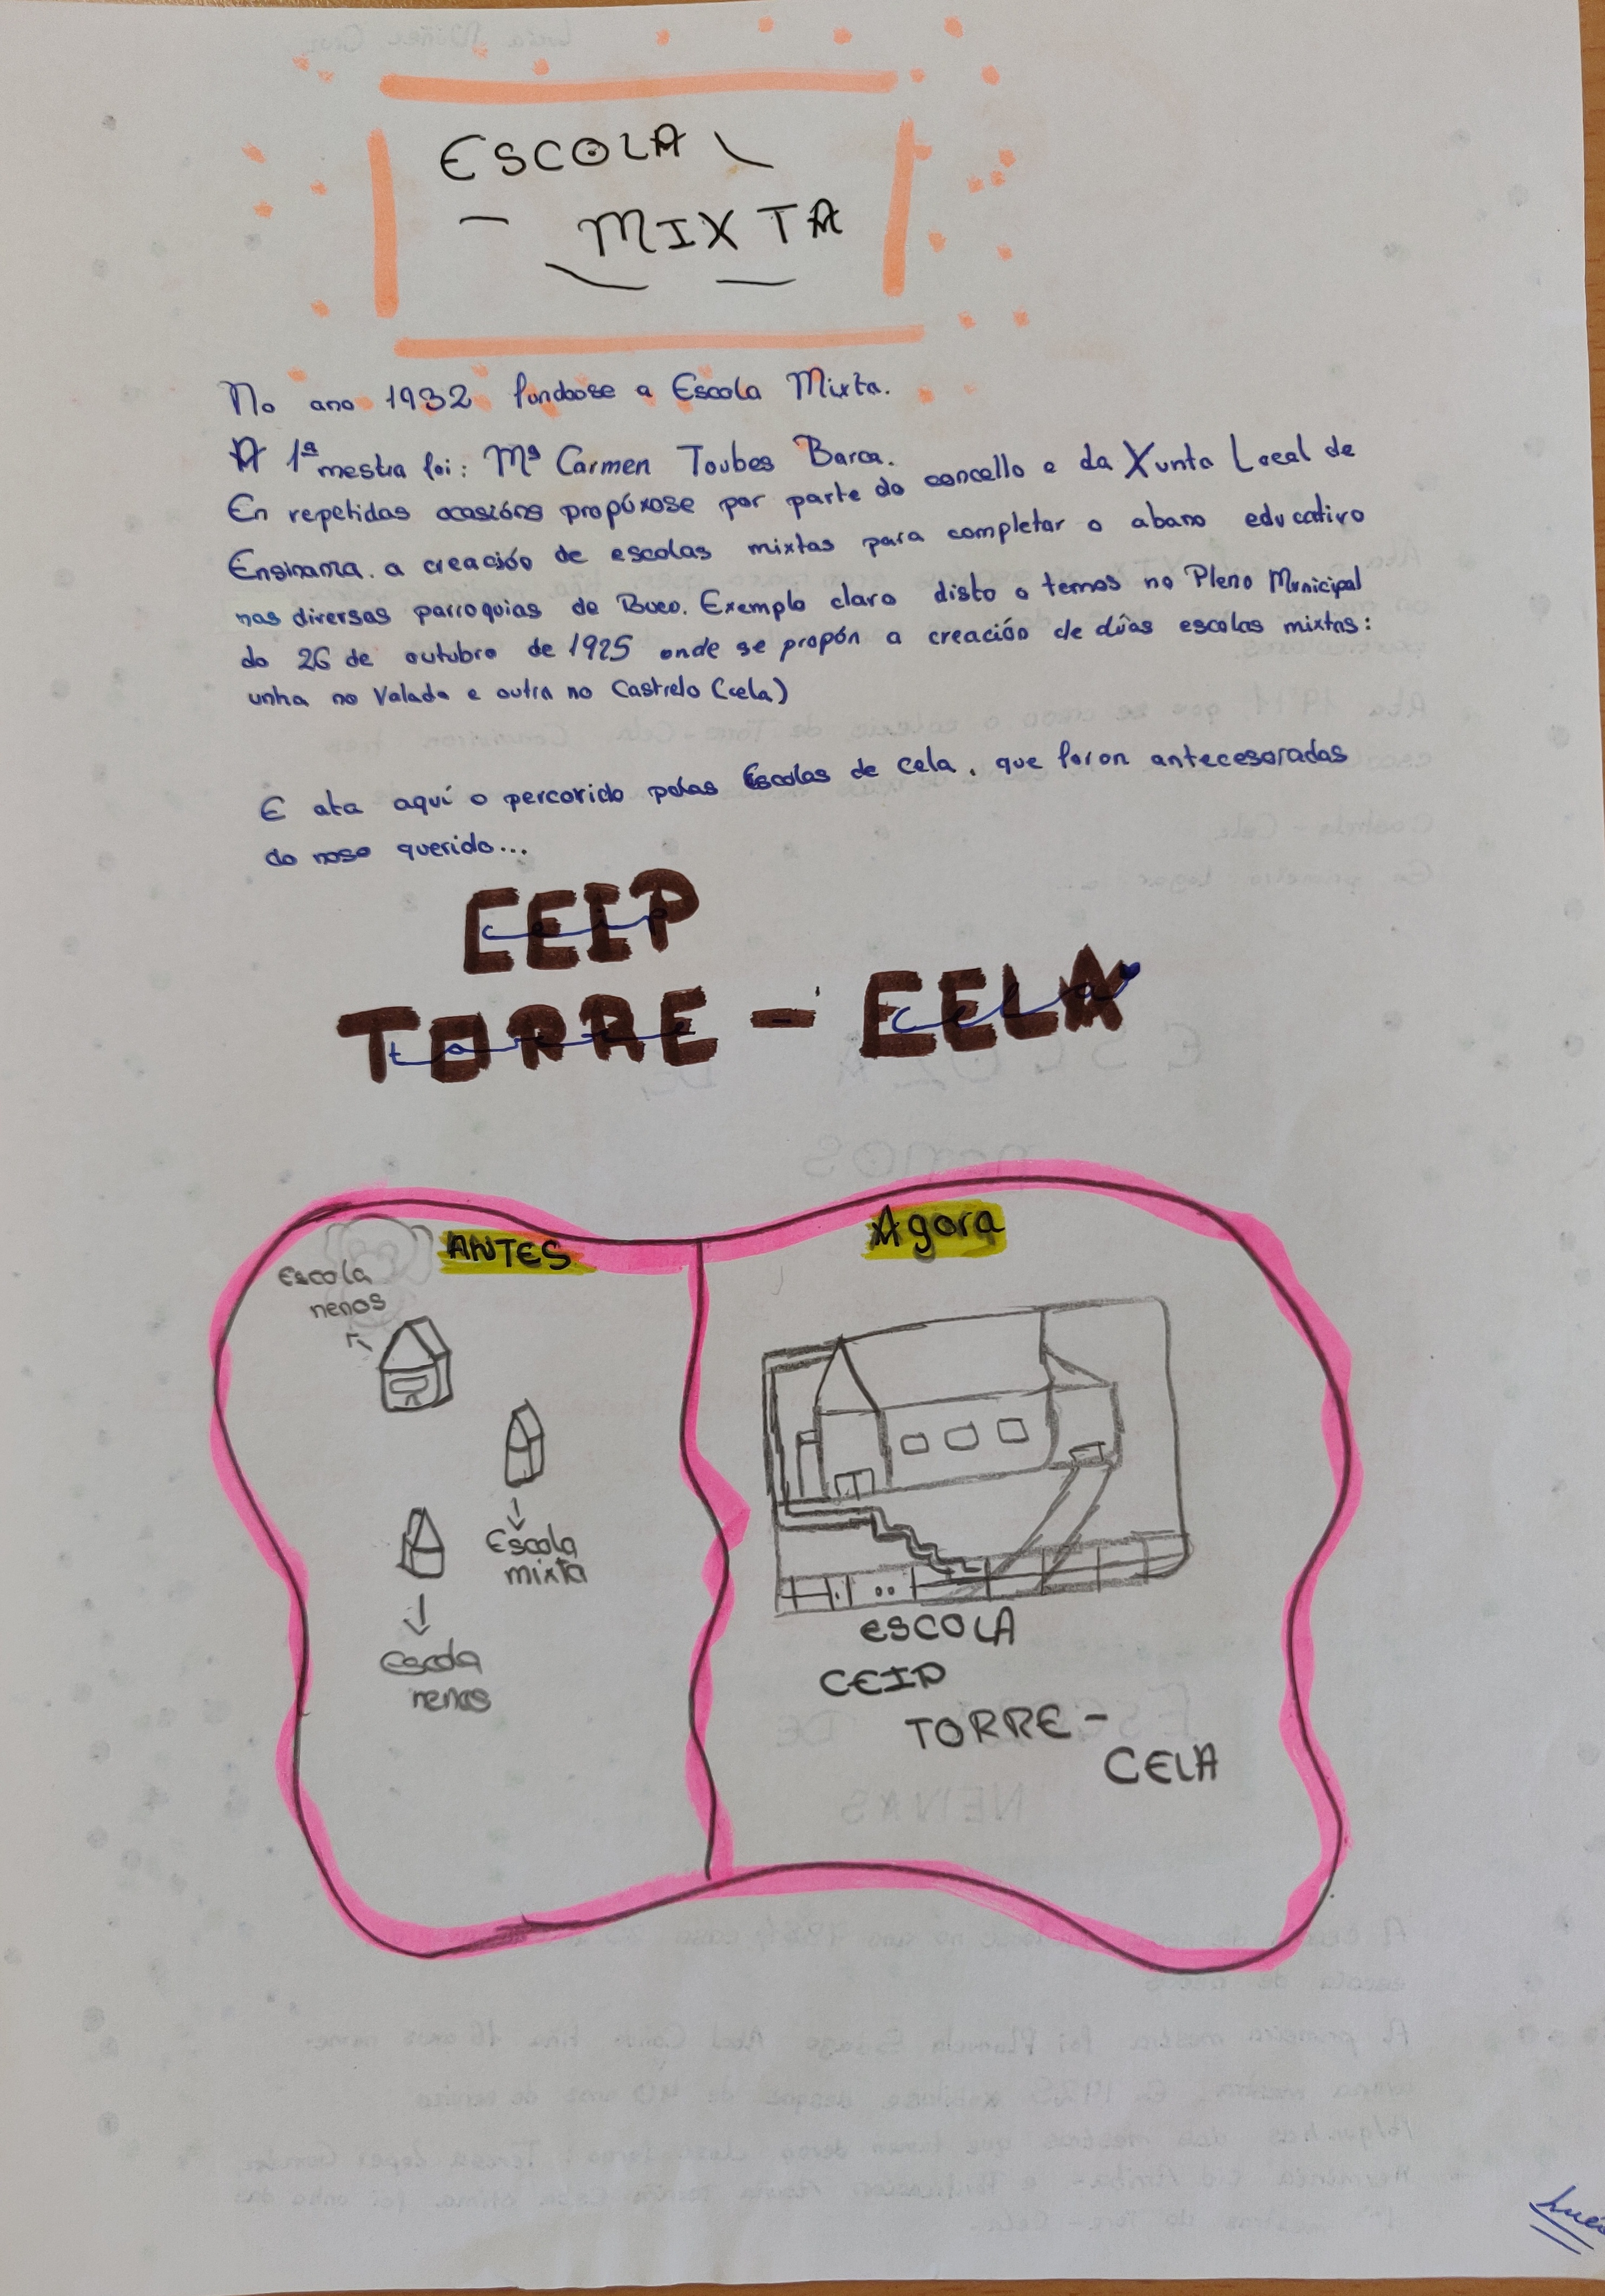 ESCOLA
MIXTA
No ano 1932 fundouse a Escola Mixta.
A 1ª mestra foi: Mª Carmen Toubes Barca.
En repetidas ocasións propúxose por parte do concello e da Xunta Local de
Ensinanza. a creación de escolas mixtas para completar o abano educativo
nas diversas parroquias de Bueu. Exemplo claro disto o temos no Pleno Municipal
do 26 de outubro de 1925 onde se propón a creación de dúas escolas mixtas:
unha no Valado e outra no Castrelo (cela)
E ata aquí o percorido polas Escolas de Cela, que foron antecesoradas
do noso querido...
CEIP
TORRE - CELA
ANTES
Escola
nenos
Escola
mixta
Escola
nenas
Agora
ESCOLA
CEIP
TORRE -
CELA